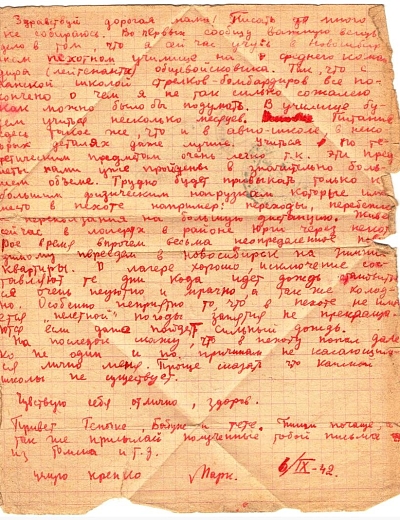 Здравствуй дорогая мама! Писать много
не собираюсь. Во первых сообщу важную вещь
дело в том, что я сейчас учусь в Новосибир
ском пехотном училище на среднего коман
дира (лейтенанта) общевойсковика. Так, что с
канской школой стрелков-бомбардиров все по
кончено о чем я не так сильно сожалею
как можно было бы подумать. В училище бу
дем учиться несколько месяцев. Питание
здесь такое же, что и в авио-школе в неко
торых деталях даже лучше. Учиться по те
оретическим предметам очень легко т.к. эти пред
меты нами уже пройдены в значительно боль
шем объеме. Трудно будет привыкать только к
большим физическим нагрузкам которые име
ются в пехоте например: переходы, перебежки
переползания на большую дистанцию. Живем
сейчас в лагерях в районе Юрги через некот
рое время впрочем весьма неопределенное по
видимому переедем в Новосибирск на зимние
квартиры. В лагере хорошо, исключение сос
тавляют те дни когда идет дождь становится
ся очень неуютно и мрачно а так же холод
но. Особенно неприятно то, что в пехоте не име
ется "нелетной" погоды занятия не прекраща
ются если даже пойдет сильный дождь.
На последок скажу, что в пехоту попал дале
ко не один и по причинам не касающим
ся лично меня. Проще сказать что канской
школы не существует.
Чувствую себя отлично, здоров.
Привет и тете. Пиши почаще, а
так же присылай полученные тобой письма
из Томска и т.д.
целую крепко Марк. 6/IX-42.